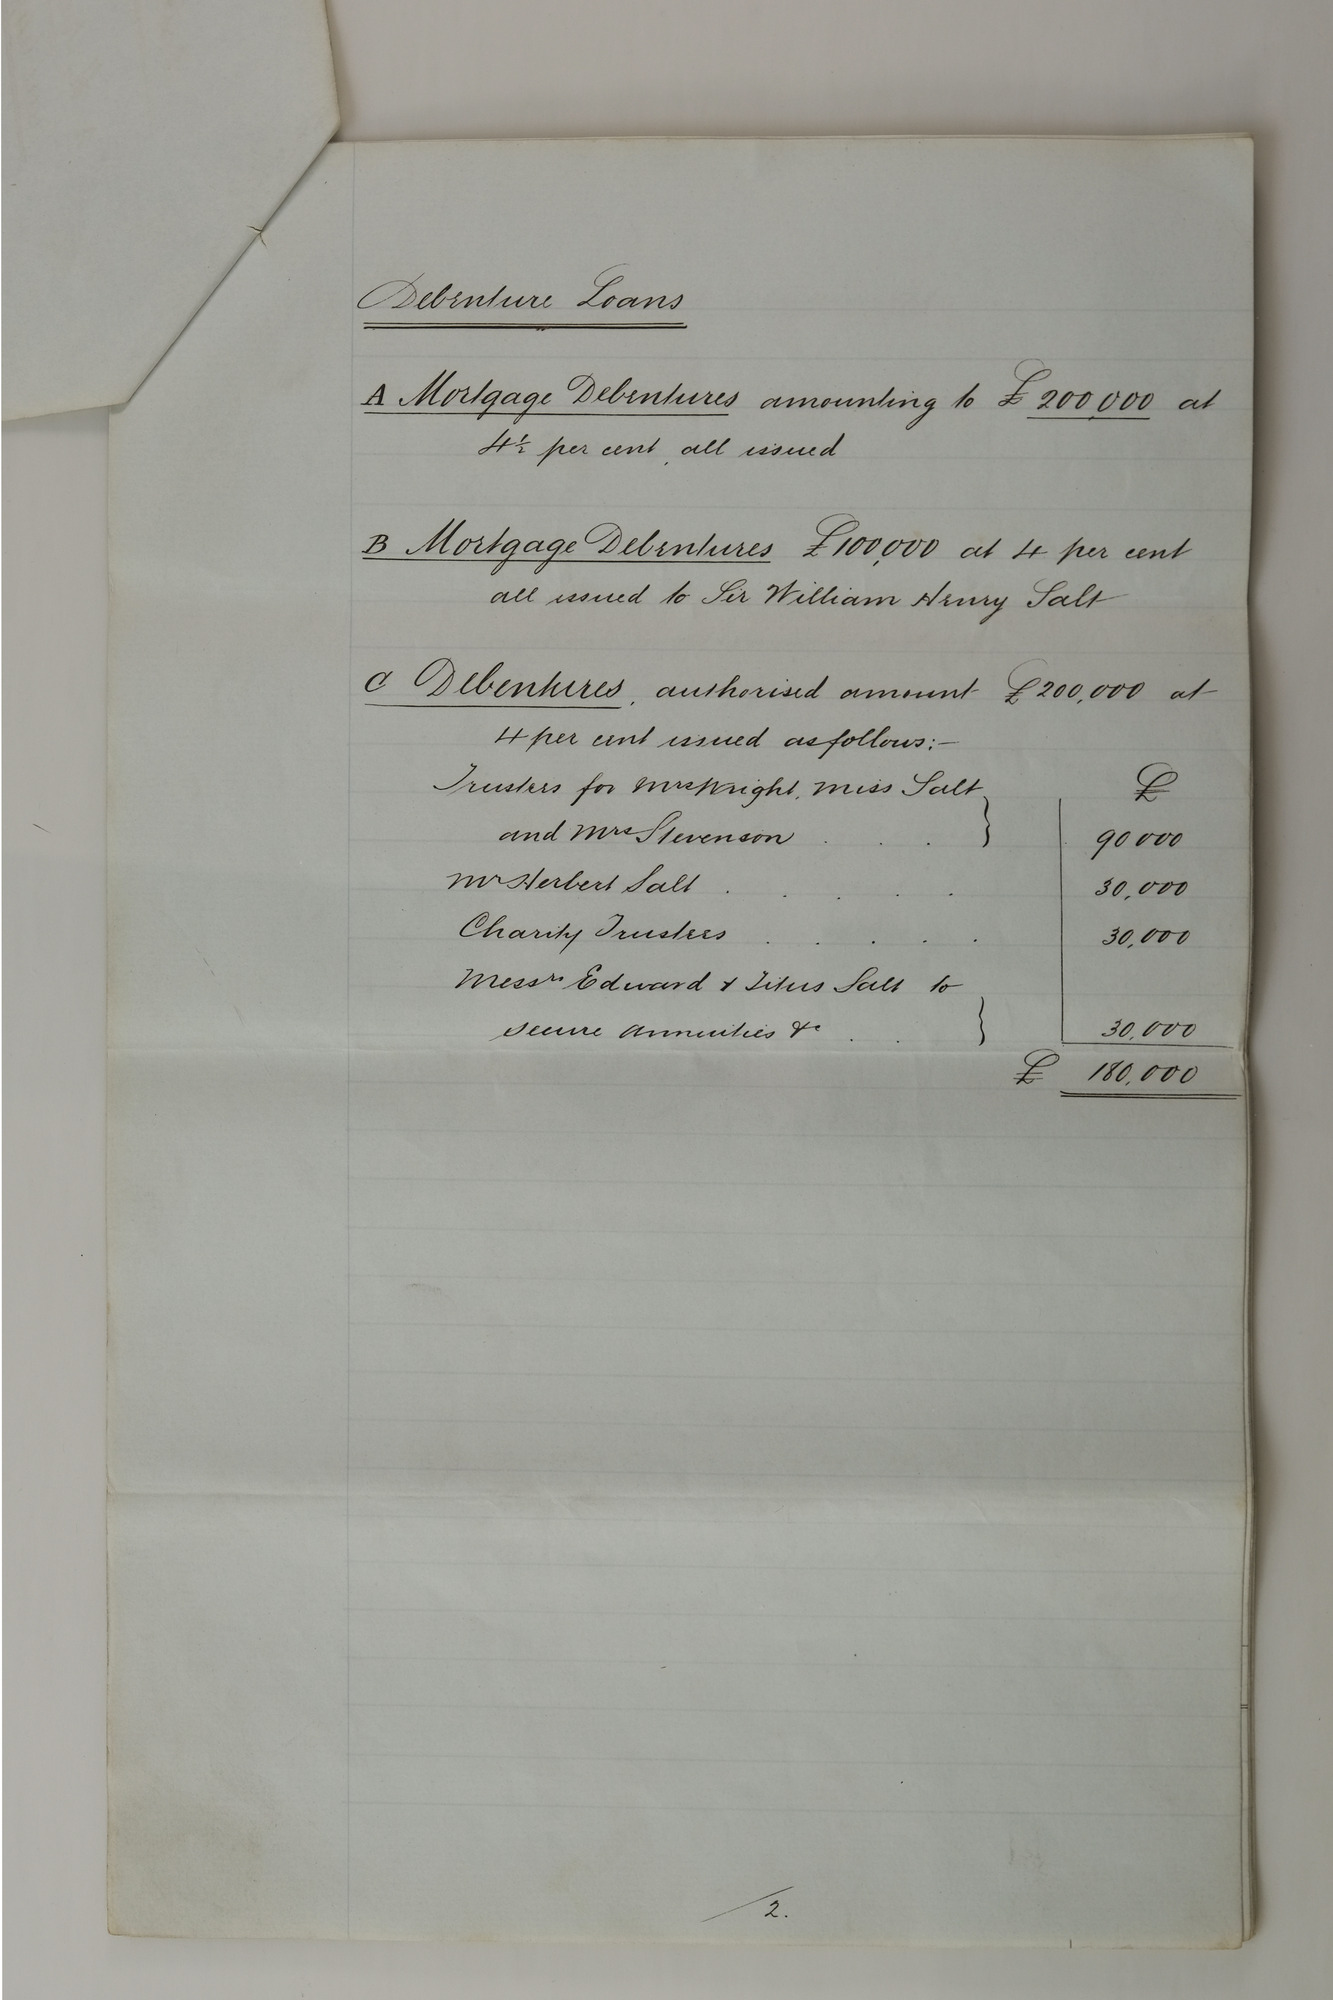 Debenture Loans
A Mortgage Debentures amounting to £200,000 at
4½ per cent, all issued
B Mortgage Debentures £100,000 at 4 per cent
all issued to Sir William Henry Salt
C Debentures, authorised amount £200,000 at
4 per cent issued as follows:—
Trustees for Mrs Wright, Miss Salt £
and Mrs Stevenson . . . } 90000
Mr Herbert Salt . . . . 30,000
Charity Trustees . . . . 30,000
Messrs Edward & Titus Salt to
secure annuities &c . . } 30,000
£ 180,000
/2.